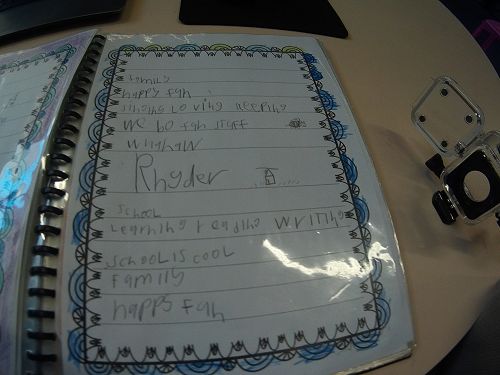 family
happy fah
loving keeping
we bo fah stuff
Rhyder
school
Learning reading writing
school is cool
family
happy fah